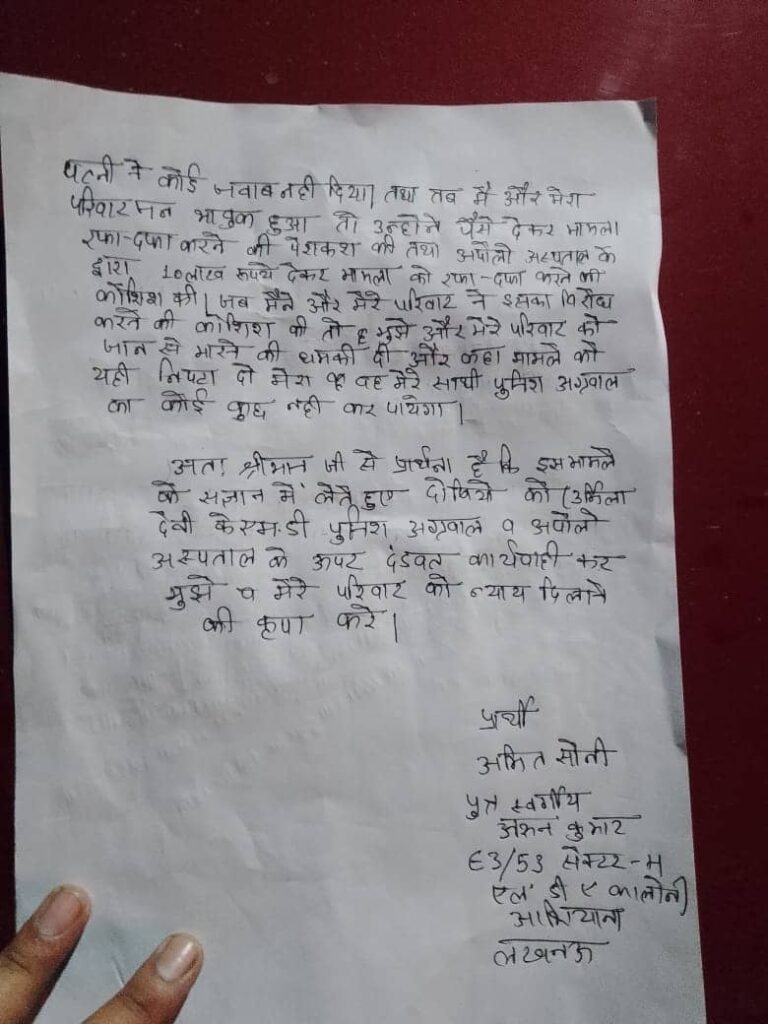 पत्नी ने कोई जवाब नही दिया। तथा तब मै और मेरा
परिवार मन भावुक हुआ तो उन्होने पैसे देकर मामला
रफा-दफा करने की पेशकश की तथा अपोलो अस्पताल के
द्वारा 10 लाख रूपये देकर मामला को रफा-दफा करने की
कोशिश की। जब मैने और मेरे परिवार ने इसका विरोध
करने की कोशिश की तो मुझे और मेरे परिवार को
जान से मारने की धमकी दी और कहा मामले को
यही निपटा दो मेरा व मेरे साथी पुनिश अग्रवाल
का कोई कुछ नही कर पायेगा।
अतः श्रीमान जी से प्रार्थना है कि इस मामले
को सज्ञान में लेते हुए दोषियो को (उर्मिला
देवी के एम.डी पुनिश अग्रवाल व अपोलो
अस्पताल के ऊपर दंडवत कार्यवाही कर
मुझे व मेरे परिवार को न्याय दिलाने
की कृपा करे।
प्रार्थी
अमित सोनी
पुत्र स्वर्गीय
अरुन कुमार
E3/53 सेक्टर-H
एल डी ए कालोनी
आशियाना
लखनऊ